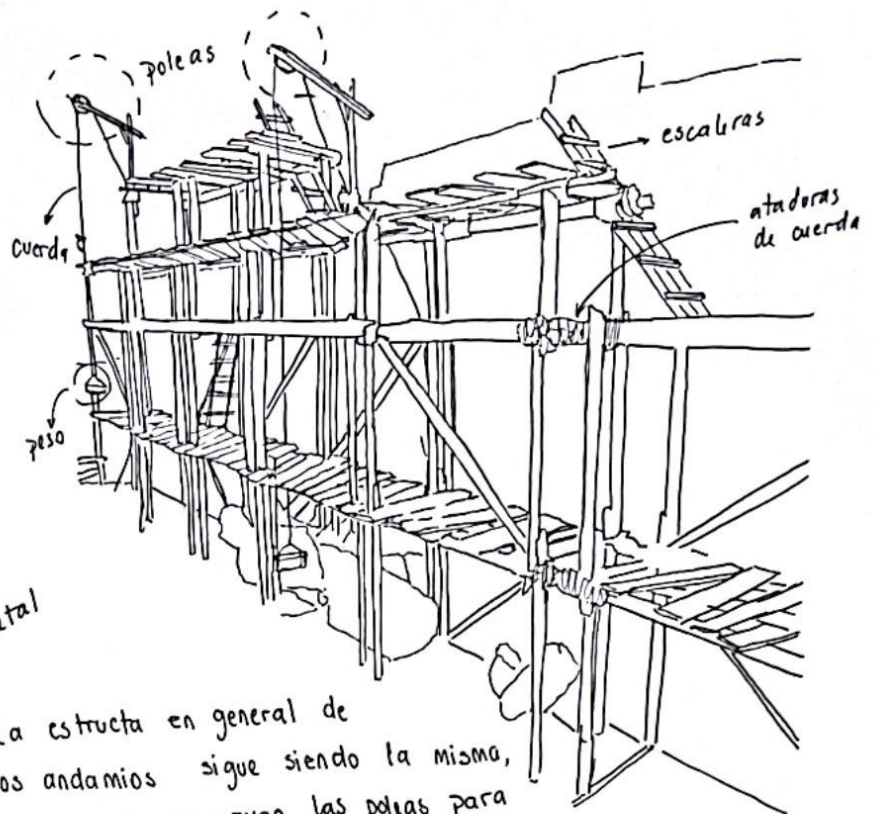 poleas
escaleras
ataduras
de cuerda
cuerda
peso
La estructa en general de
los andamios sigue siendo la misma,
las poleas para